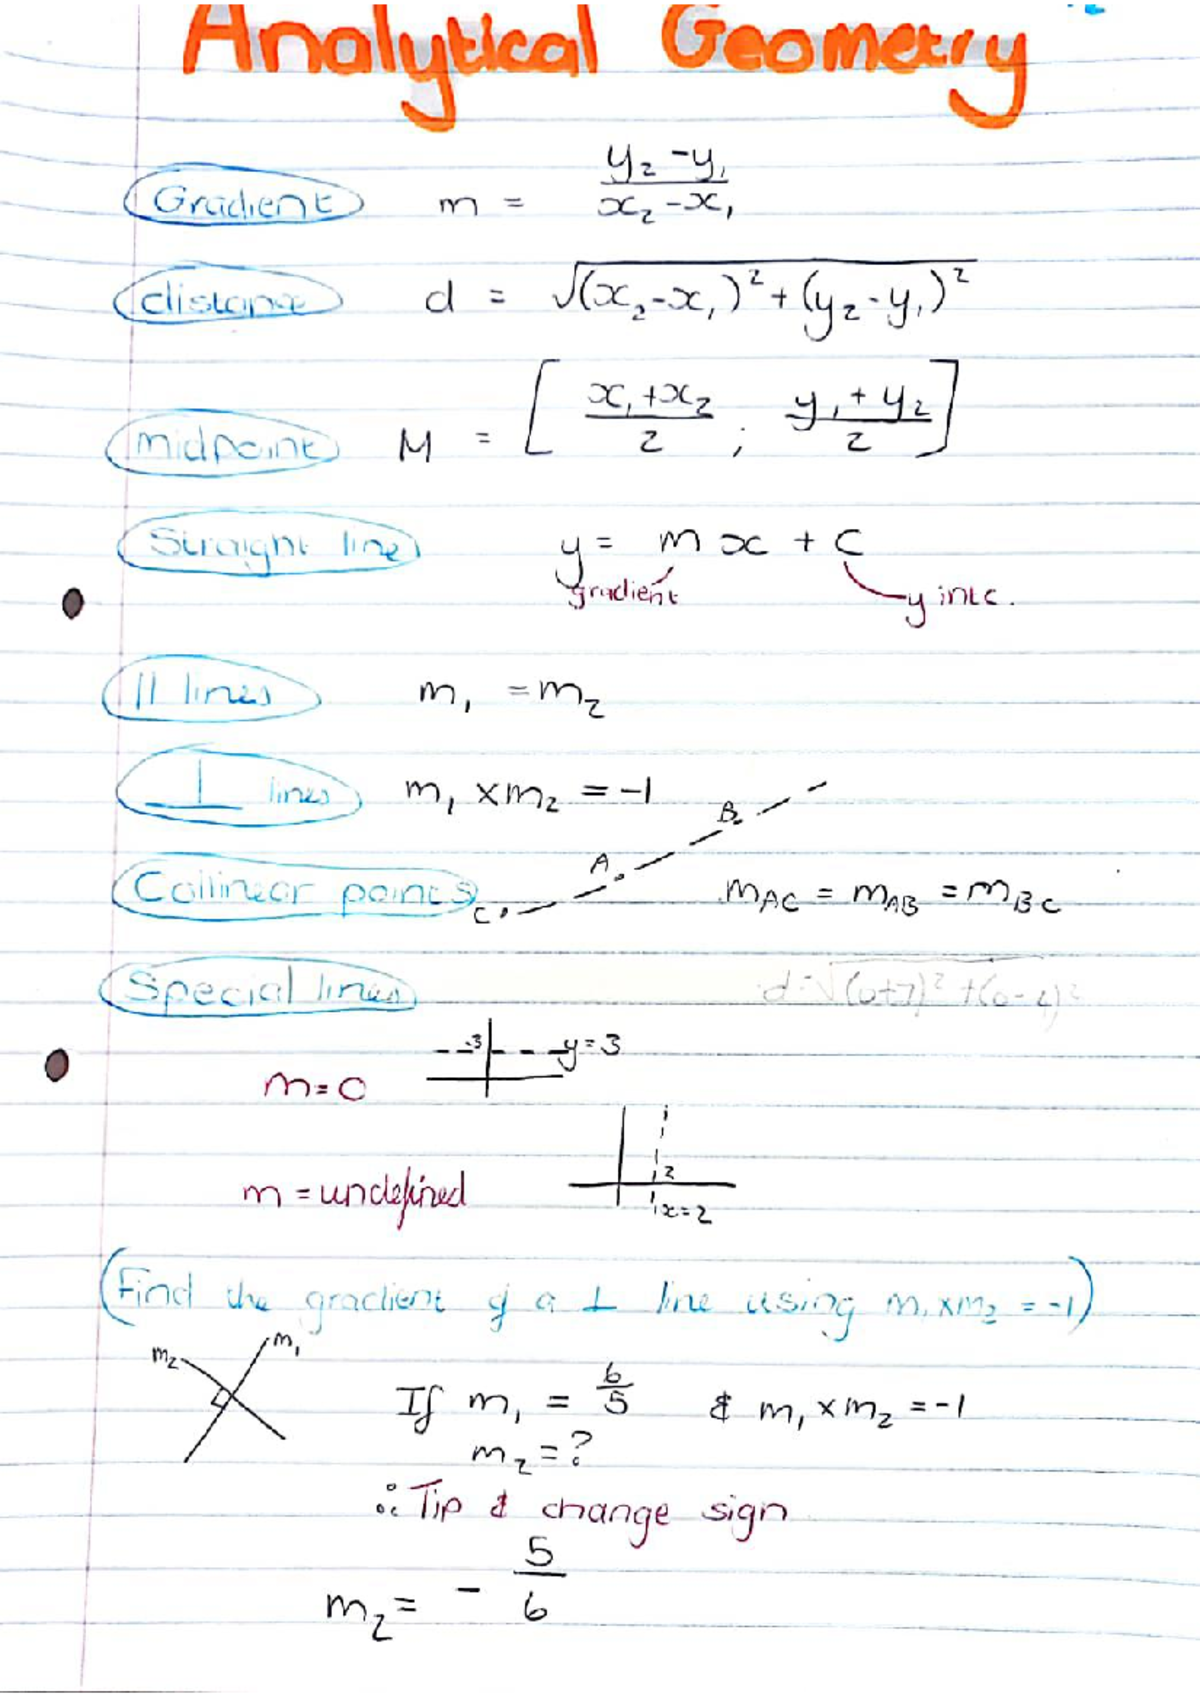 Analytical Geometry
Gradient m = y₂-y₁ / x₂-x₁
distance d = √(x₂-x₁)²+(y₂-y₁)²
midpoint M = [x₁+x₂ / 2 ; y₁+y₂ / 2]
Straight line y = mx + c
gradient y intc.
|| lines m₁ = m₂
⊥ lines m₁ × m₂ = -1
B
A
Collinear points C m_AC = m_AB = m_BC
Special lines d=√(0+7)²+(0-4)²
3 y=3
m=0
2
m = undefined x=2
(Find the gradient of a ⊥ line using m₁×m₂ = -1)
m₂ m₁
If m₁ = 6/5 & m₁ × m₂ = -1
m₂ = ?
∴ Tip & change sign
m₂ = - 5/6